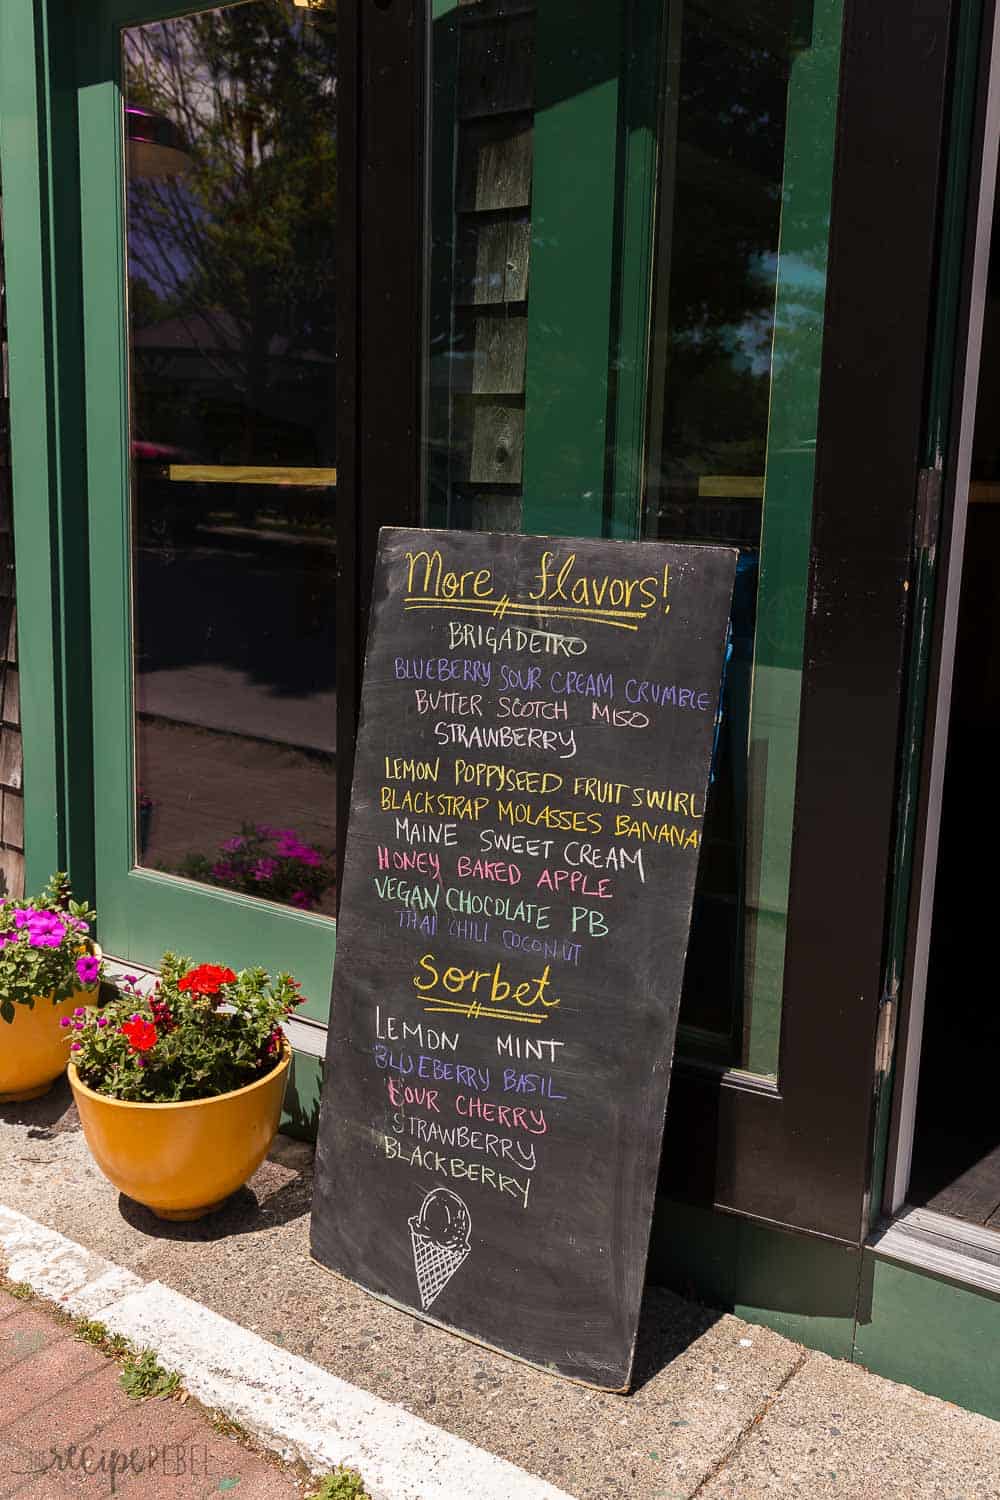 More flavors!
BRIGADEIRO
BLUEBERRY SOUR CREAM CRUMBLE
BUTTER SCOTCH MISO
STRAWBERRY
LEMON POPPYSEED FRUIT SWIRL
BLACKSTRAP MOLASSES BANANA
MAINE SWEET CREAM
HONEY BAKED APPLE
VEGAN CHOCOLATE PB
THAI CHILI COCONUT
Sorbet
LEMON MINT
BLUEBERRY BASIL
SOUR CHERRY
STRAWBERRY
BLACKBERRY
the recipe REBEL